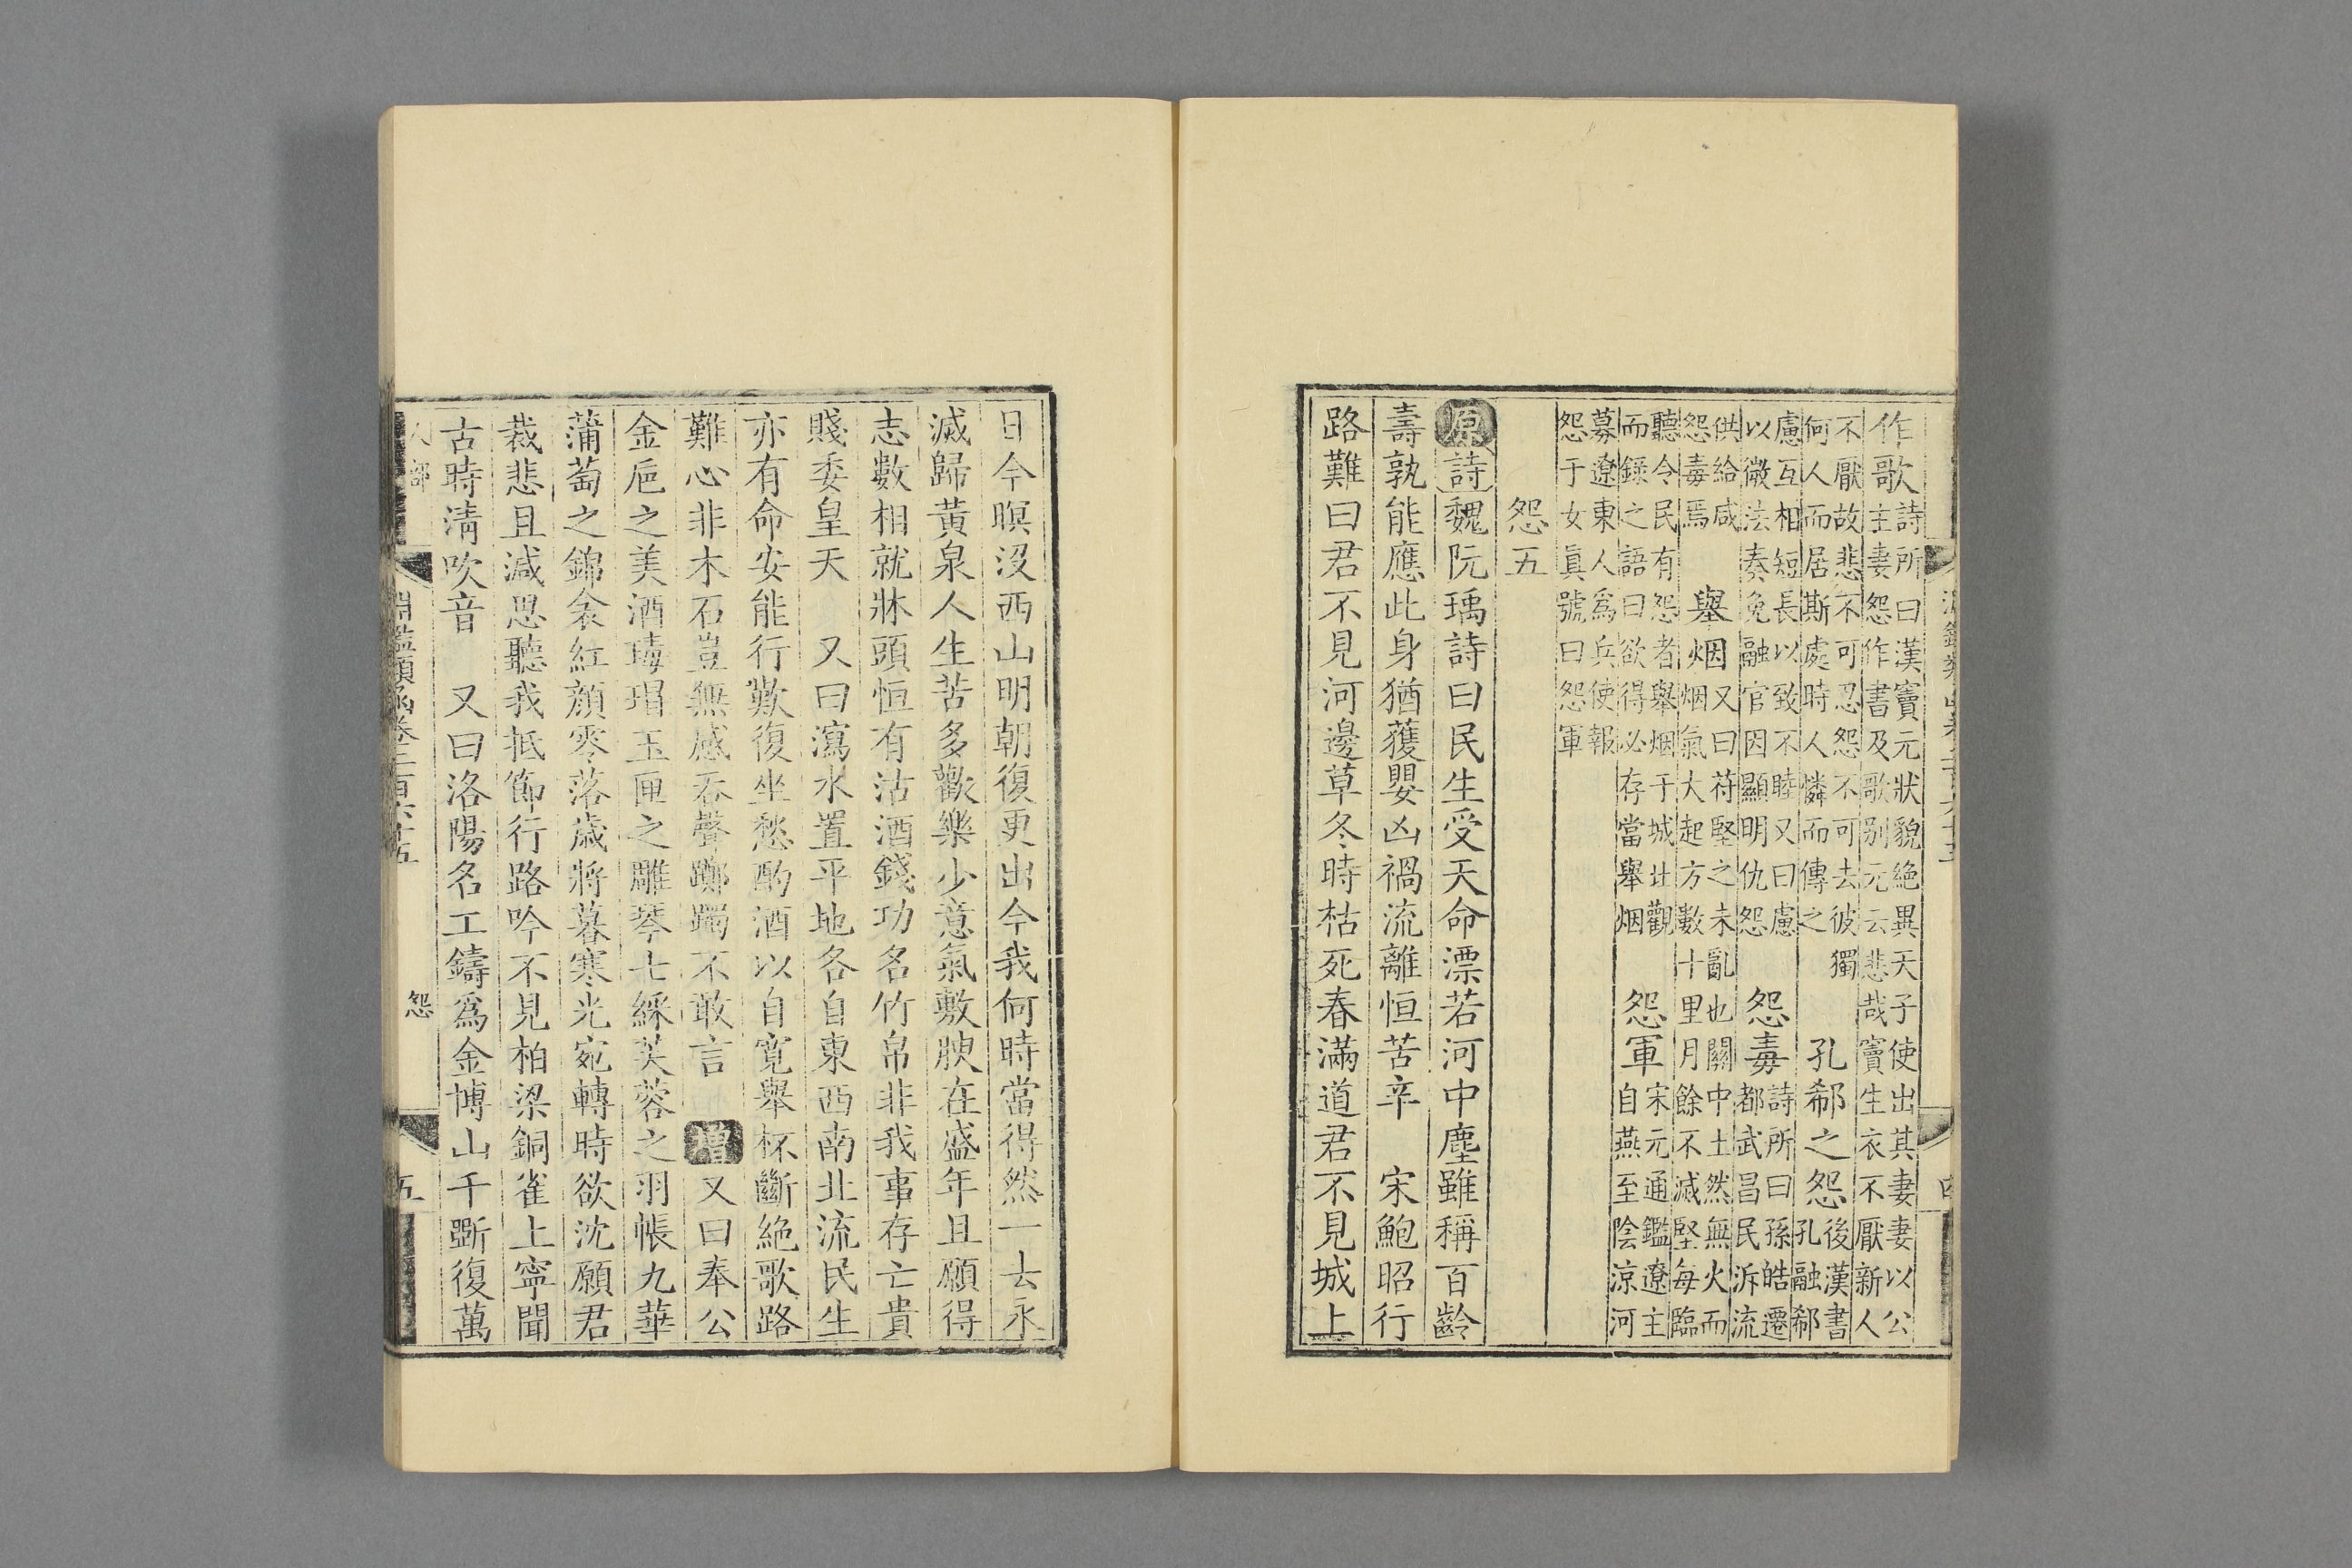 作歌
詩所曰漢竇元狀貌絕異天子使出其妻妻以公
主妻怨作書及歌別元云悲哉竇生衣不厭新人
不厭故悲不可忍怨不可去彼獨
何人而居斯處時人憐而傳之
孔郗之怨
後漢書
孔融郗
慮互相短長以致不睦又曰慮
以微法奏免融官因顯明仇怨
怨毒
詩所曰孫皓遷
都武昌民泝流
供給咸
怨毒焉
舉烟
又曰苻堅之未亂也關中土然無火而
烟氣大起方數十里月餘不滅堅每臨
聽令民有怨者舉烟于城北觀
而錄之語曰欲得必存當舉烟
怨軍
宋元通鑑遼主
自燕至陰涼河
募遼東人爲兵使報
怨于女眞號曰怨軍
怨五
原詩魏阮瑀詩曰民生受天命漂若河中塵雖稱百齡
壽孰能應此身猶獲嬰凶禍流離恒苦辛　宋鮑昭行
路難曰君不見河邊草冬時枯死春滿道君不見城上
日今暝沒西山明朝復更出今我何時當得然一去永
滅歸黃泉人生苦多歡樂少意氣敷腴在盛年且願得
志數相就牀頭恒有沽酒錢功名竹帛非我事存亡貴
賤委皇天　又曰瀉水置平地各自東西南北流民生
亦有命安能行歎復坐愁酌酒以自寬舉杯斷絕歌路
難心非木石豈無感吞聲躑躅不敢言　增又曰奉公
金巵之美酒瑇瑁玉匣之雕琴七綵芙蓉之羽帳九華
蒲萄之錦衾紅顏零落歲將暮寒光宛轉時欲沈願君
裁悲且減思聽我抵節行路吟不見柏梁銅雀上寧聞
古時淸吹音　又曰洛陽名工鑄爲金博山千斲復萬
人部
淵鑑類函卷三百六十五
怨
五